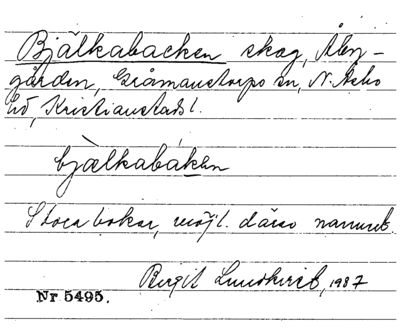 Bjälkabacken skog, Ålen-
gården, Gråmanstorps sn, N. Åsbo
hd, Kristianstads l.
bjælkabákɘn
Stora bokar, möjl. därav namnet.
Birgit Lundkvist, 1987
Nr 5495.